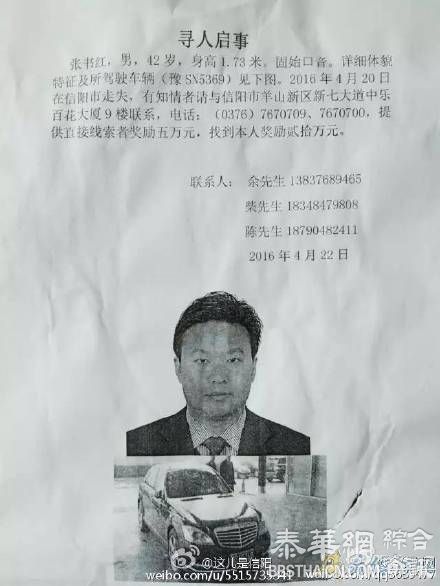 寻人启事
张书红，男，42岁，身高1.73米。固始口音。详细体貌
特征及所驾驶车辆（豫SN5369）见下图。2016年4月20日
在信阳市走失，有知情者请与信阳市羊山新区新七大道中乐
百花大厦9楼联系，电话：（0376）7670709、7670700，提
供直接线索者奖励五万元，找到本人奖励贰拾万元。
联系人：余先生 13837689465
柴先生 18348479808
陈先生 18790482411
2016年4月22日
@这儿是信阳
weibo.com/u/5515735341
泰華網 綜合
BBSTHAICN.COM